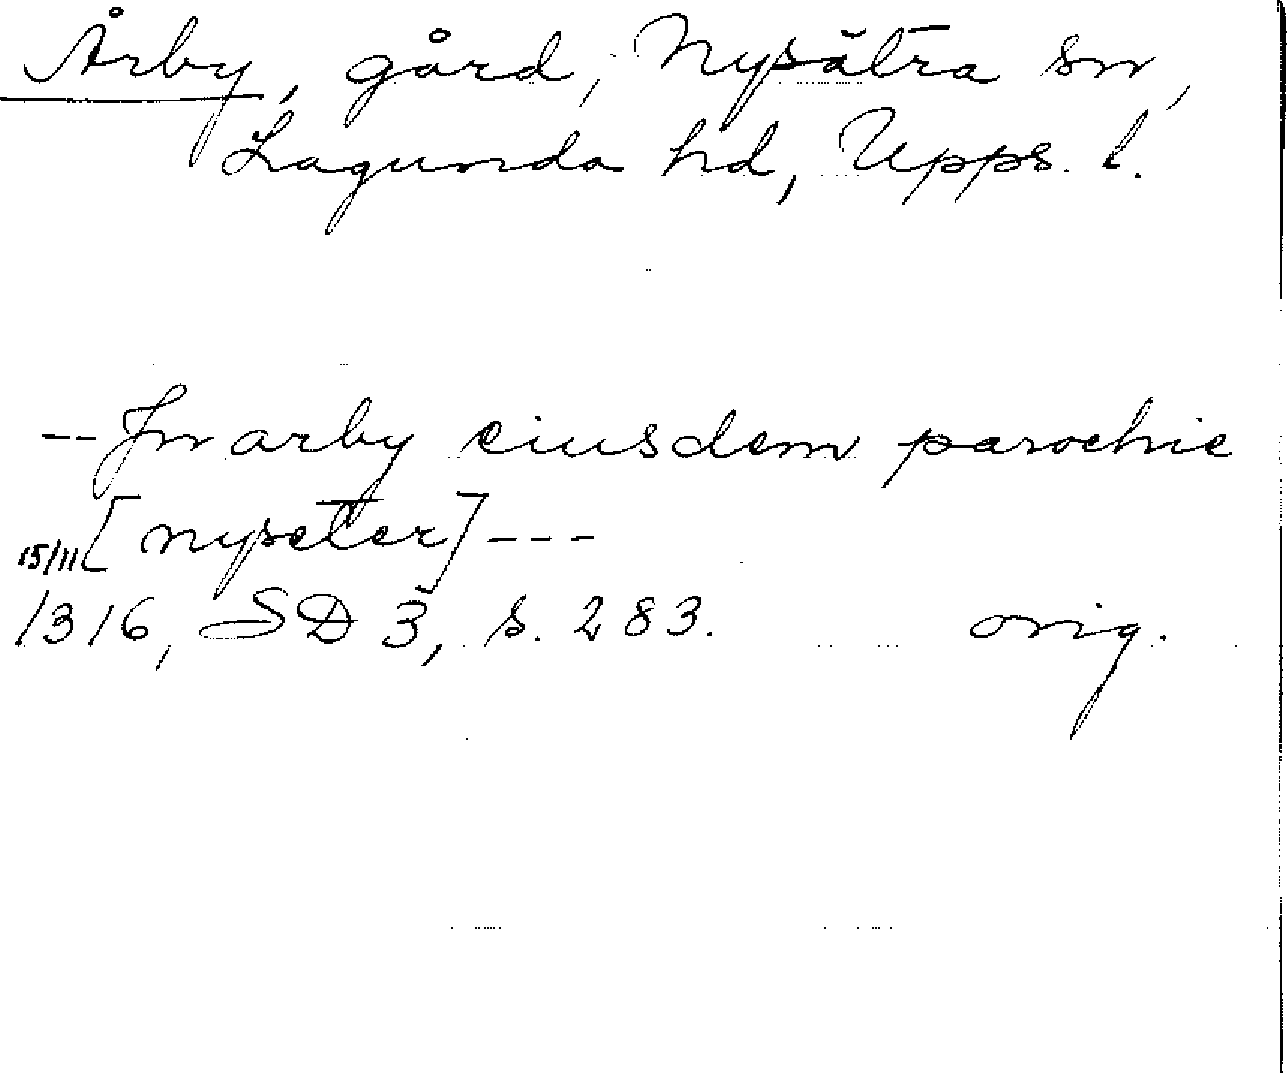 Årby, gård, Nysätra sn,
Lagunda hd, Upps. l.
-- Jn arby eiusdem parochie
[nyseter] ---
15/11
1316, SD 3, s. 283. orig.